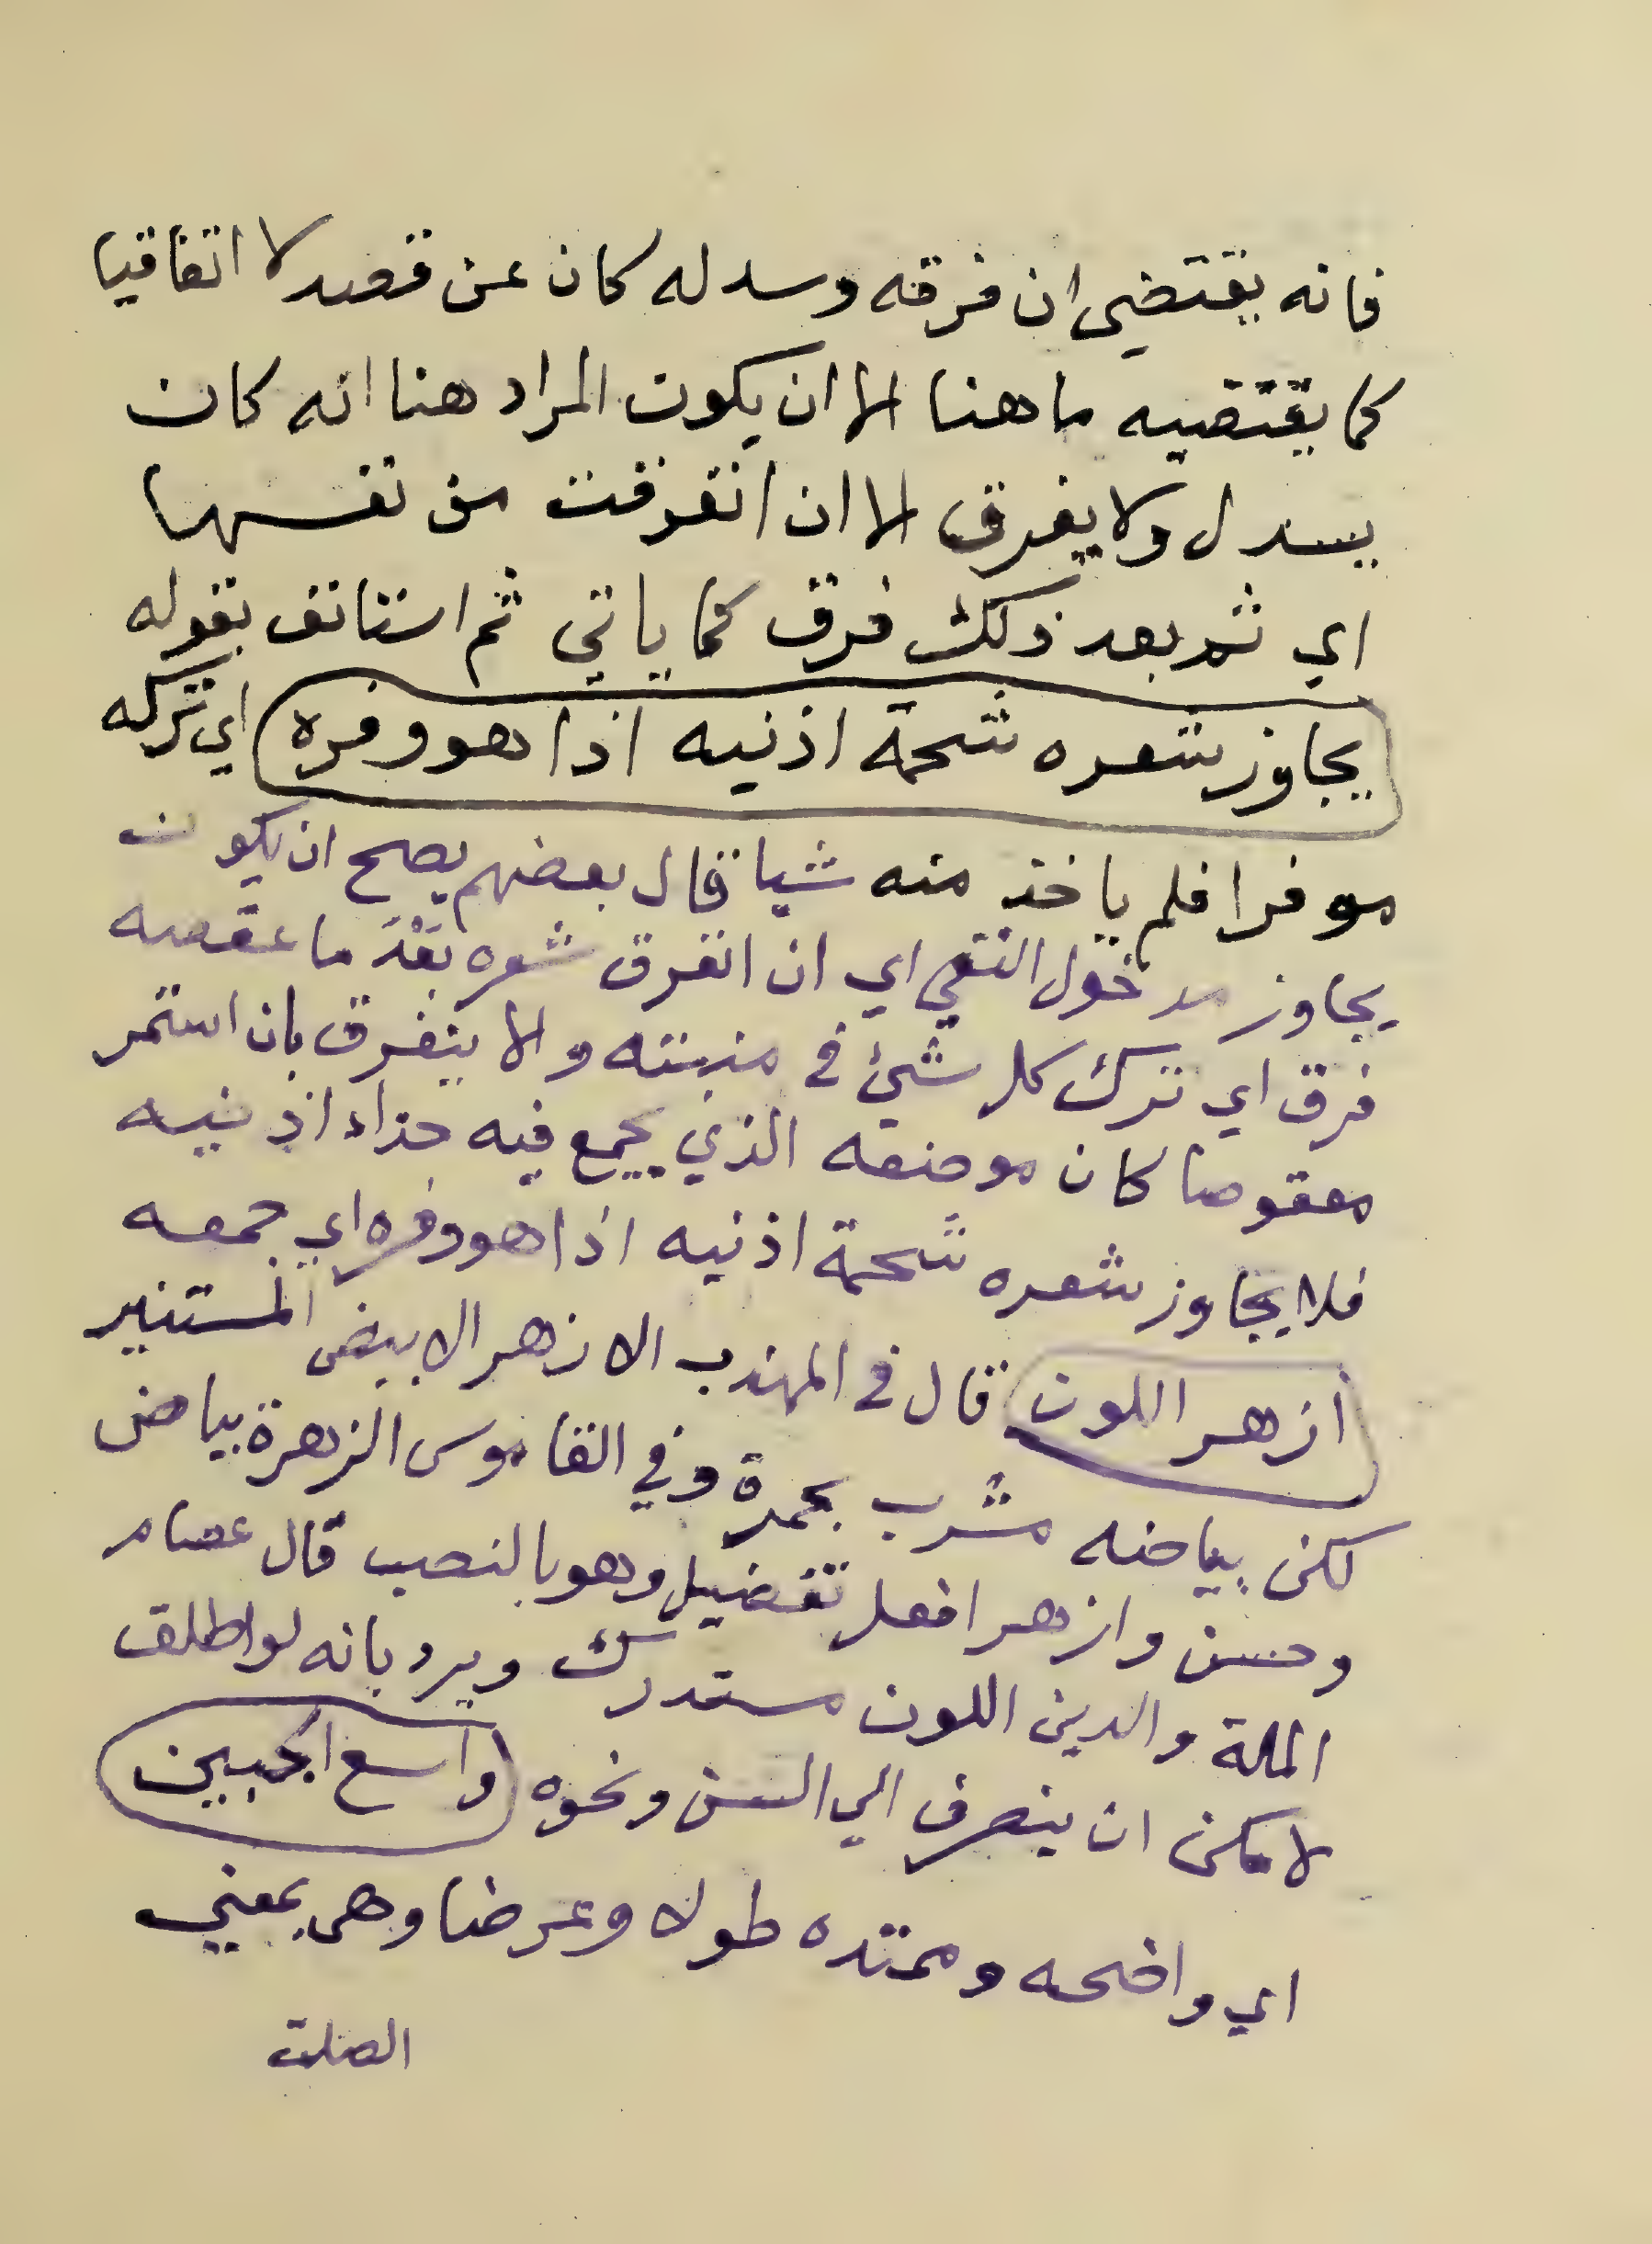 فانه يقتضي ان فرقه وسدله كان عن قصد لا اتفاقيا
كما يقتضيه ما هنا الا ان يكون المراد هنا انه كان
يسدل ولا يفرق الا ان انفرقت من نفسها
اي ثم بعد ذلك فرق كما ياتي ثم استانف بقوله
يجاوز شعره شحمة اذنيه اذا هو وفره اي تركه
موفرا فلم ياخذ منه شيا قال بعضهم يصح ان يكون
يجاوز مدخول النفي اي ان انفرق شعره بعد ما عقصه
فرق اي ترك كل شئ في منبته والا ينفرق بان استمر
معقوصا كان موضعه الذي يجمع فيه حذاء اذنيه
فلا يجاوز شعره شحمة اذنيه اذا هو وفره اي جمعه
أزهر اللون قال في المهذب الازهر الابيض المستنير
لكن بياضه مشرب بحمرة وفي القاموس الزهرة بياض
وحسن وازهر افعل تفضيل وهو بالنصب قال عصام
الملة والدين اللون مستدرك ويرد بانه لو اطلق
لامكن ان ينصرف الي السن ونحوه واسع الجبين
اي واضحه وممتده طولا وعرضا وهي بمعني
الصلت